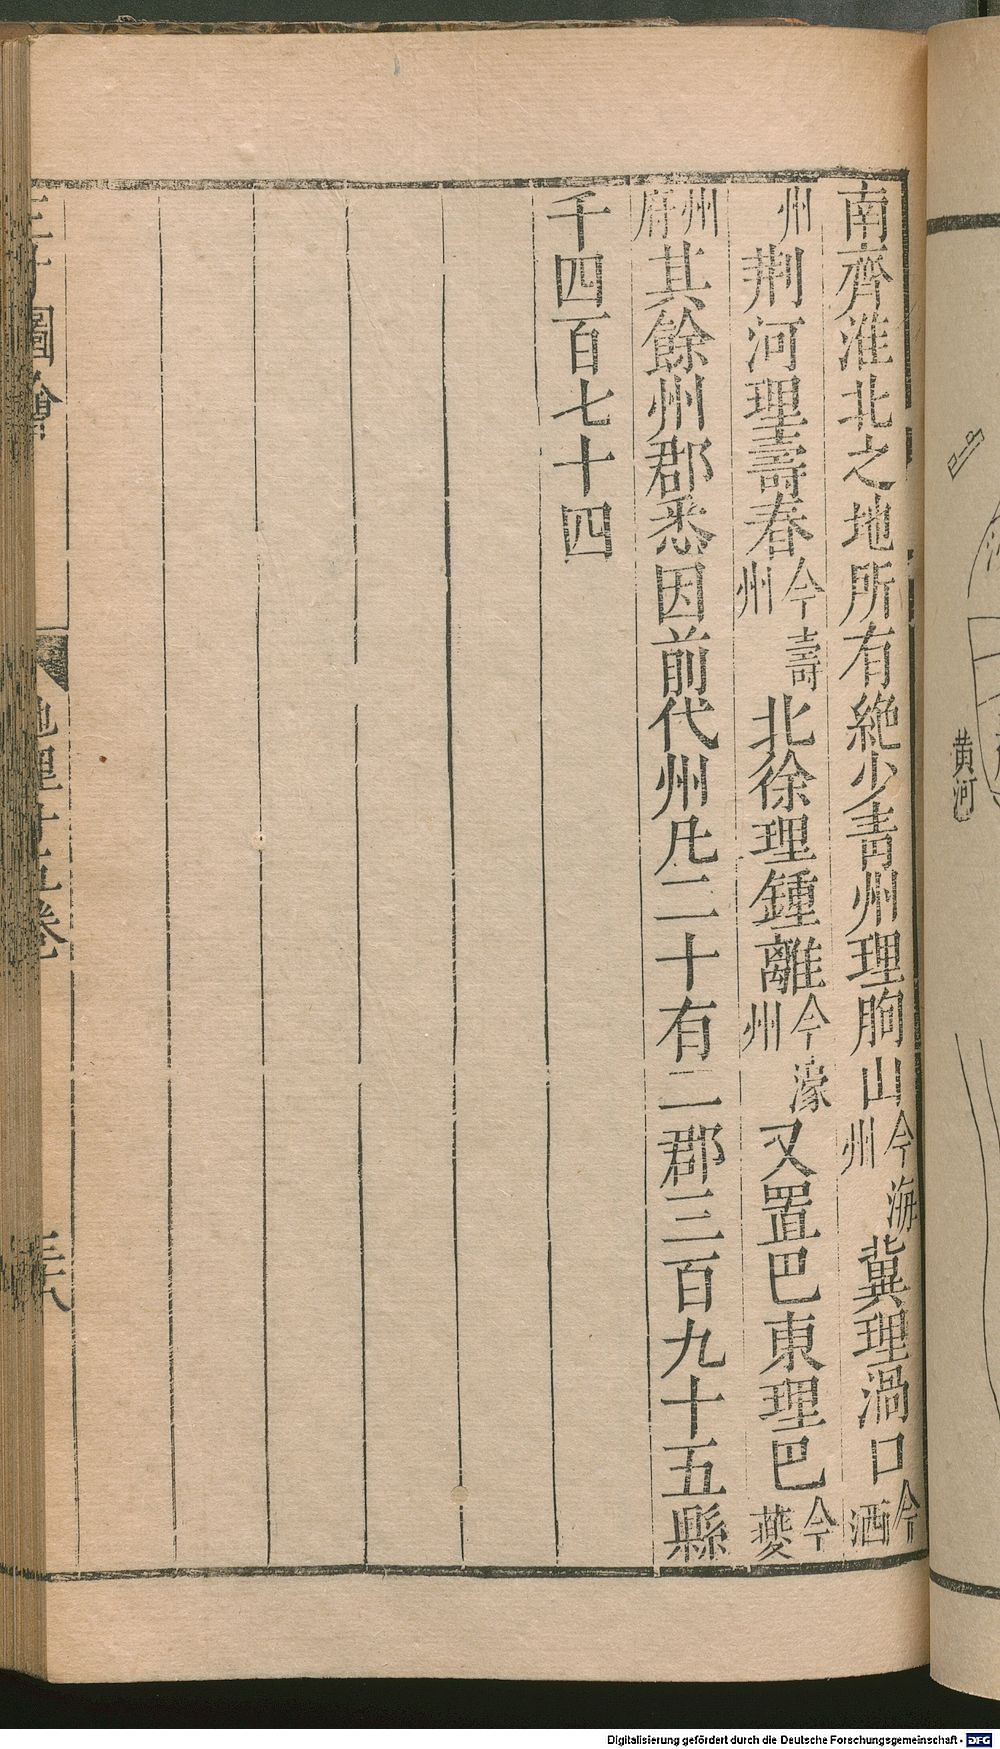 南齊淮北之地所有絶少青州理朐山今海州兾理渦口今泗
州荆河理壽春今壽州北徐理鍾離今濠州又置巴東理巴今夔
州府其餘州郡悉因前代州凡二十有二郡三百九十五縣
千四百七十四
三才圖會 地理十五卷 三十八
黄河
Digitalisierung gefördert durch die Deutsche Forschungsgemeinschaft - DFG